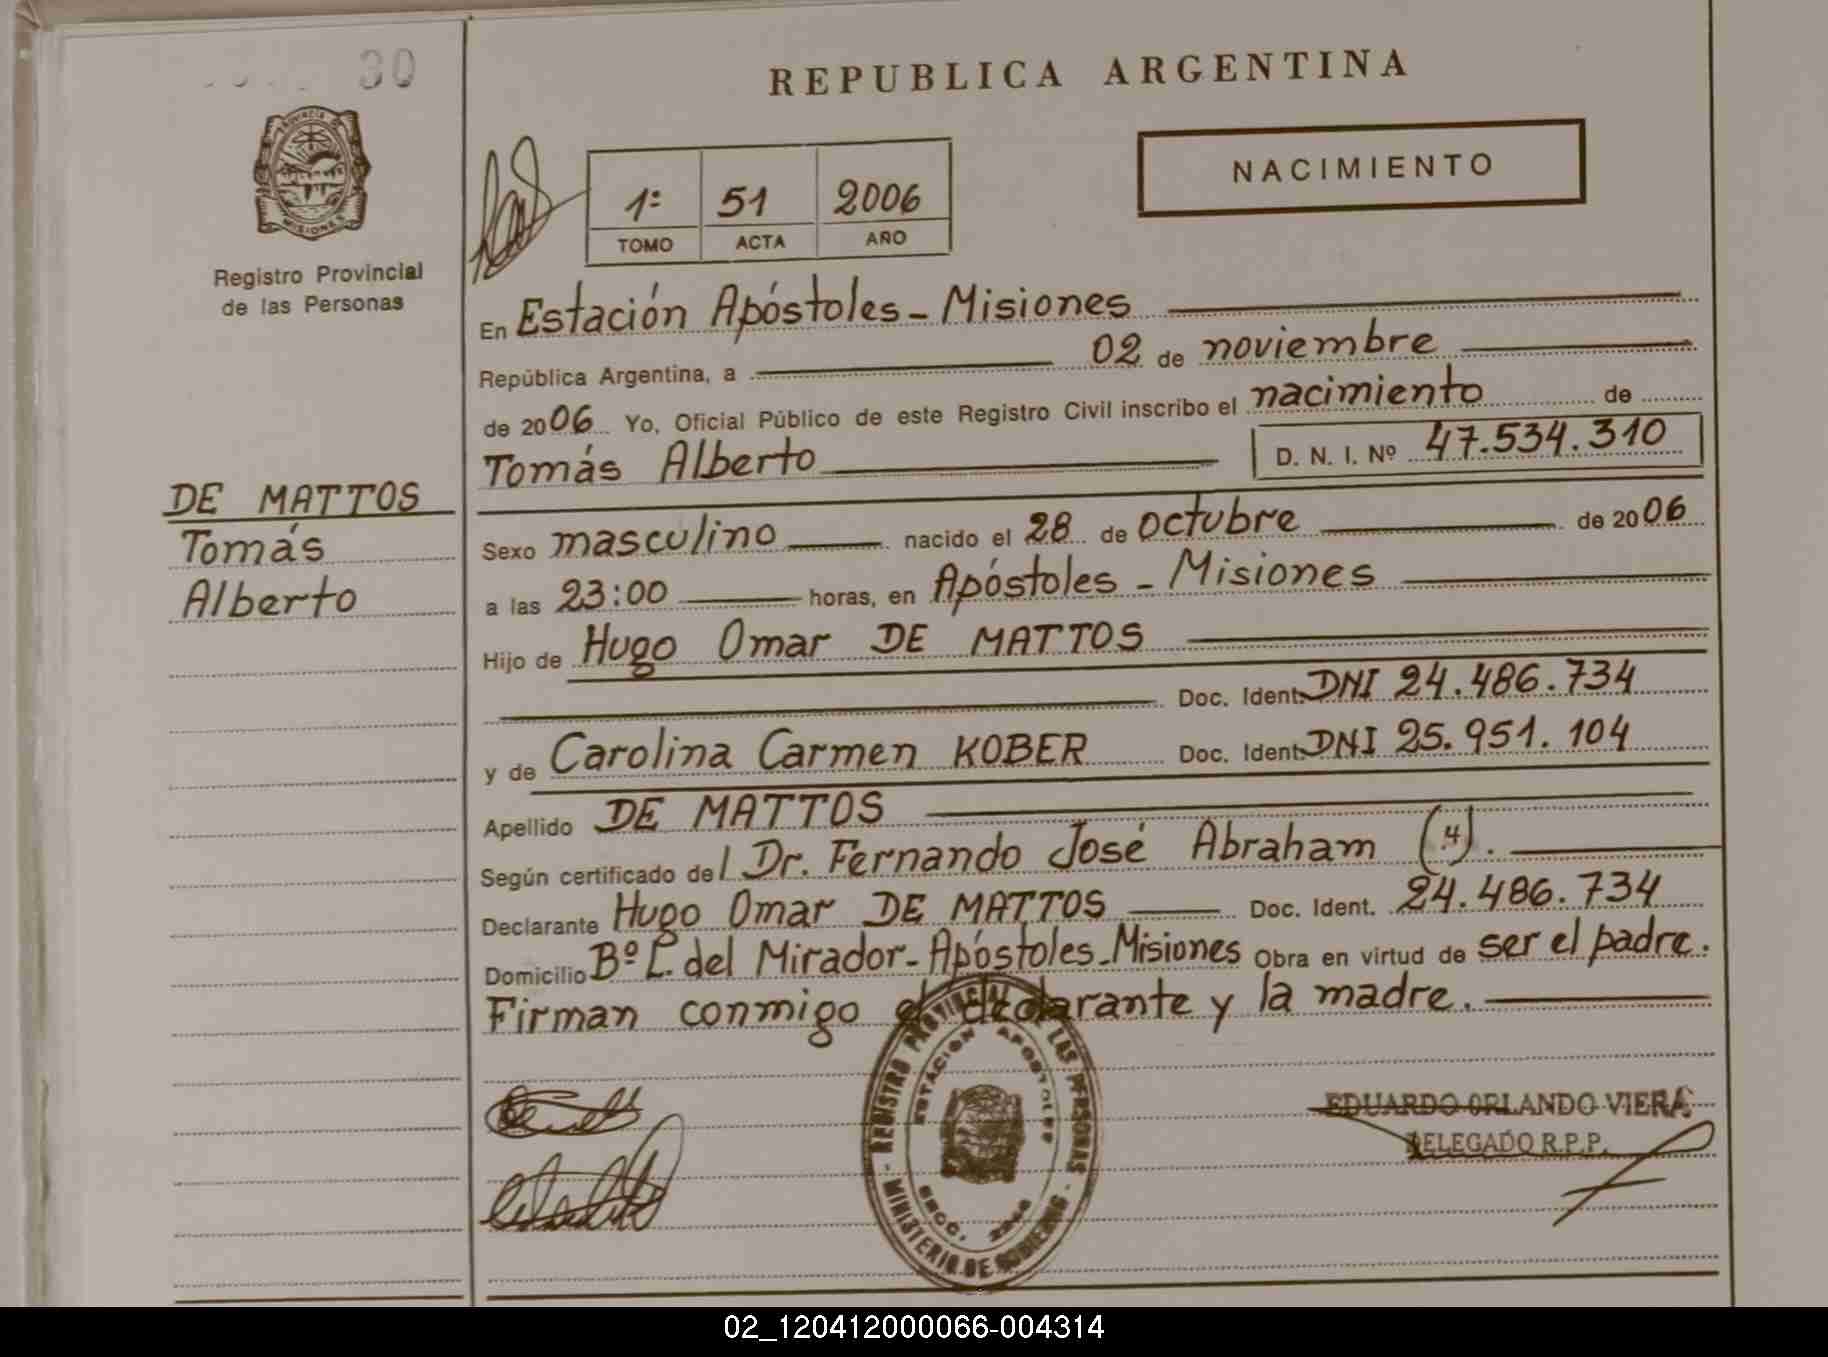 30
PROVINCIA DE
MISIONES
Registro Provincial
de las Personas
DE MATTOS
Tomás
Alberto
REPUBLICA ARGENTINA
NACIMIENTO
1º 51 2006
TOMO ACTA AÑO
En Estación Apóstoles - Misiones
República Argentina, a 02 de noviembre
de 2006 Yo, Oficial Público de este Registro Civil inscribo el nacimiento de
Tomás Alberto D. N. I. Nº 47.534.310
Sexo masculino nacido el 28 de octubre de 2006
a las 23:00 horas, en Apóstoles - Misiones
Hijo de Hugo Omar DE MATTOS
Doc. Ident. DNI 24.486.734
y de Carolina Carmen KOBER Doc. Ident. DNI 25.951.104
Apellido DE MATTOS
Según certificado del Dr. Fernando José Abraham (4).
Declarante Hugo Omar DE MATTOS Doc. Ident. 24.486.734
Domicilio Bº L. del Mirador - Apóstoles - Misiones Obra en virtud de ser el padre.
Firman conmigo el declarante y la madre.
REGISTRO PROVINCIAL DE LAS PERSONAS
ESTACIÓN APOSTOLES
MINISTERIO DE GOBIERNO
EDUARDO ORLANDO VIERA
DELEGADO R.P.P.
02_120412000066-004314